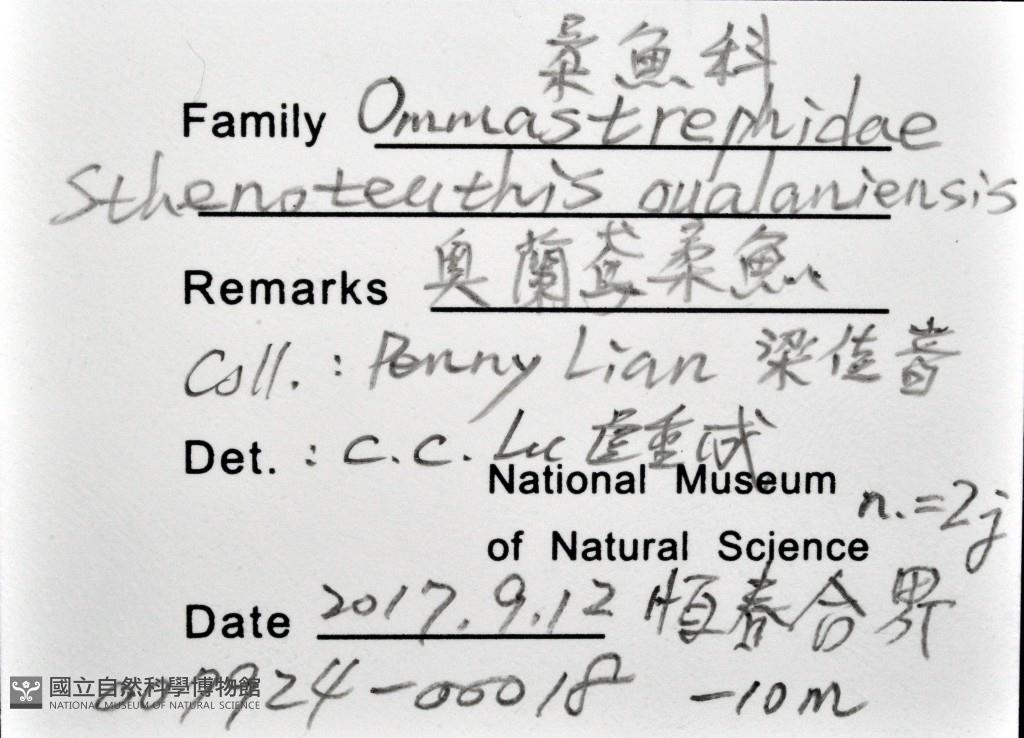 柔魚科
Family Ommastrephidae
Sthenoteuthis oualaniensis
Remarks 奧蘭鳶柔魚
Coll. : Penny Lian 梁佳音
Det. : C.C. Lu 盧重成
National Museum
of Natural Science n.=2j
Date 2017.9.12 恆春合界
9924-00018 -10m
國立自然科學博物館
NATIONAL MUSEUM OF NATURAL SCIENCE